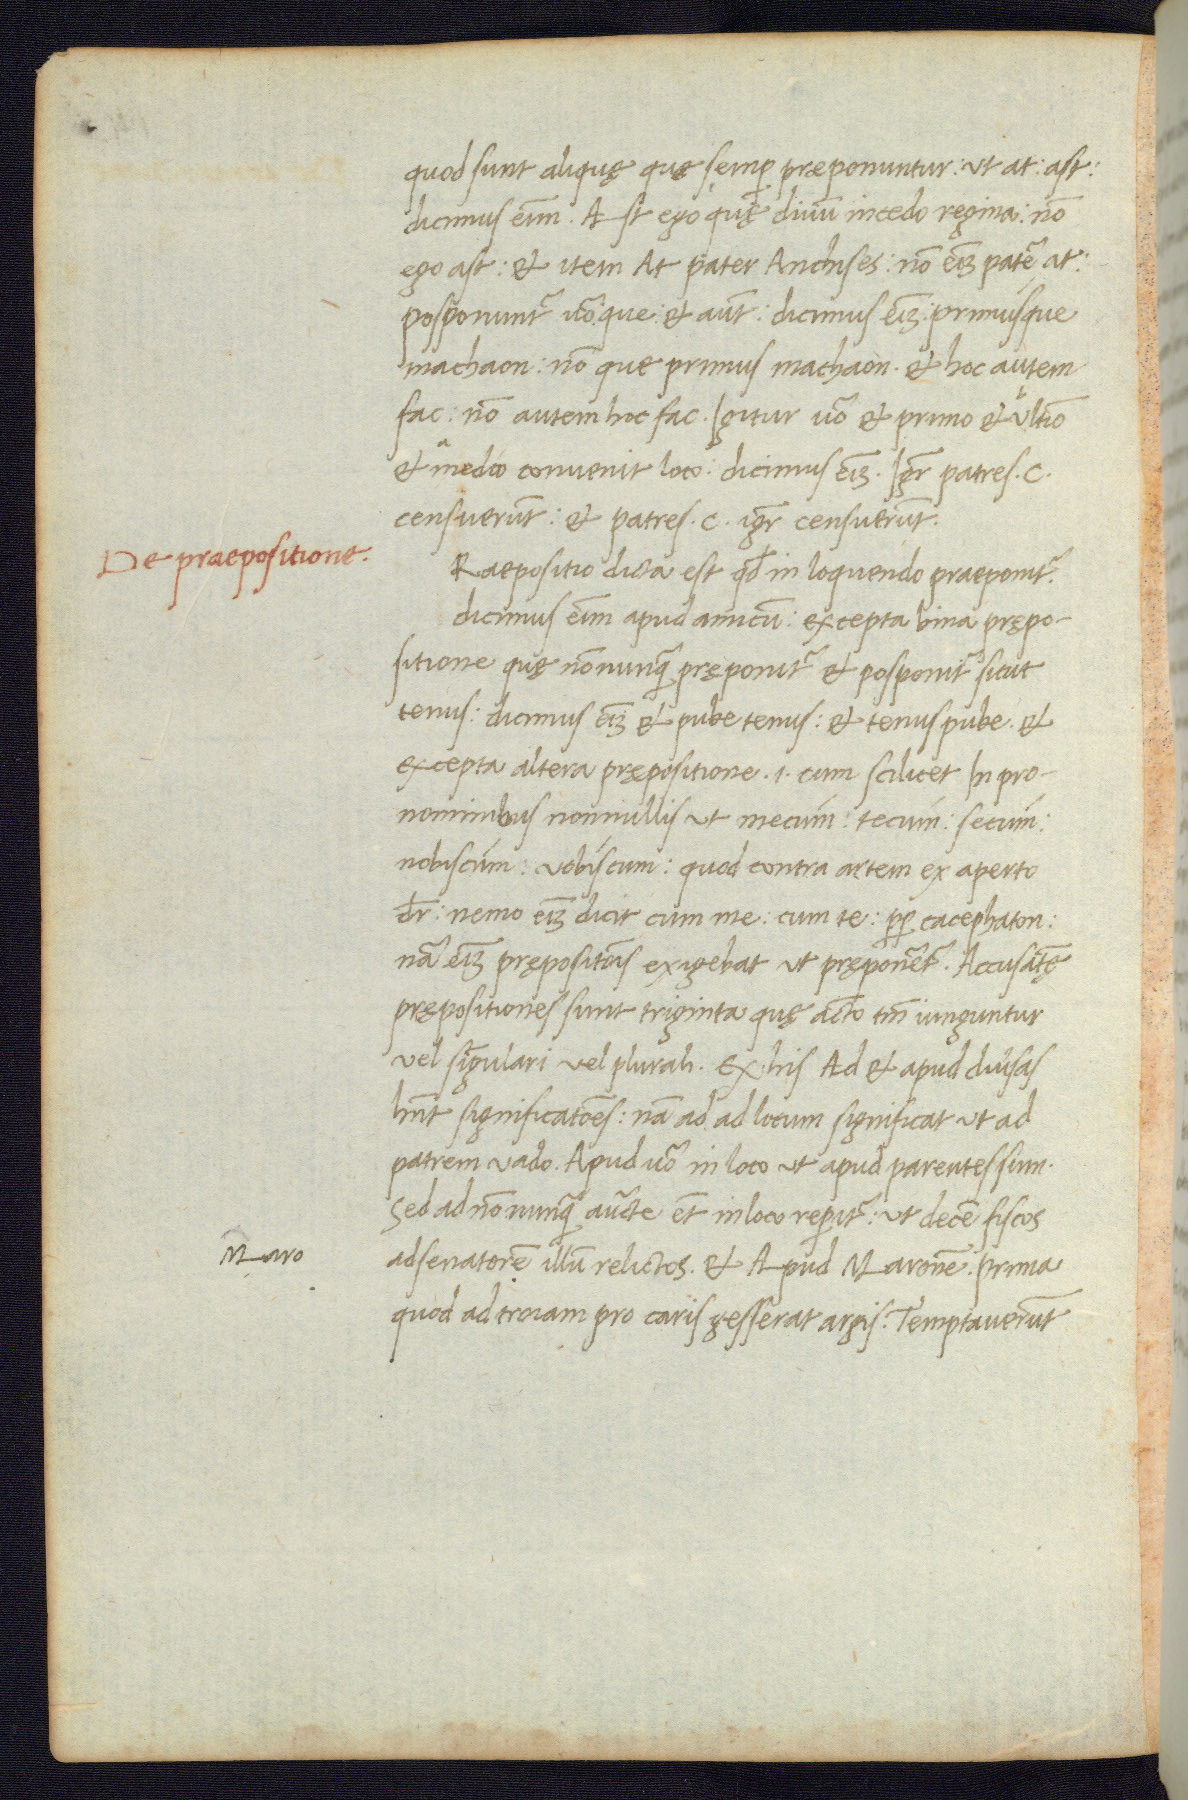 quod sunt aliquę quę semp̄ præponuntur: ut at: ast:
dicimus em̄. Ast ego quę diuū incedo regina: nō
ego ast: & item At pater Anchises: nō eīz patr̄ at:
posponunt᷑ uō: que: & aūt: dicimus eīz: primusque
machaon: nō que primus machaon. & hoc autem
fac: nō autem hoc fac. Igitur uō & primo & ultīo
& medio convenit loco: dicimus eīz. Igr̄ patres. C.
censuerūt: & patres. C. igr̄ censuerūt.
De praepositione.
Raepositio dicta est qđ in loquendo praeponit᷑.
dicimus eīm apud amicū: excepta bina prępo-
sitione quę nōnunq̄ pręponit᷑ & posponit᷑ sicut
tenus: dicimus eīz & pube tenus: & tenus pube. &
excepta altera prępositione. i. cum scilicet In pro-
nominibus nonnullis ut mecum: tecum: secum:
nobiscum: vobiscum: quod contra artem ex aperto
dr̄: nemo eīz dicit cum me: cum te: pp̄ cacephaton:
nā eīz prępositōis exigebat ut pręponēt᷑. Accusātę
prępositiones sunt triginta quę actō tm̄ iunguntur
vel singulari vel plurali. Ex his Ad & apud diu̇sas
hn̄t significatōes: nā ad ad locum significat ut ad
patrem vado. Apud uō in loco ut apud parentes sum.
Sed ad nōnunq̄ auctē et̄ in loco reperit᷑: ut decē fiscos
Maro
ad senatorē illū relictos. & Apud Maronē. prima
quod ad troiam pro caris gesserat argis: Temptaverūt